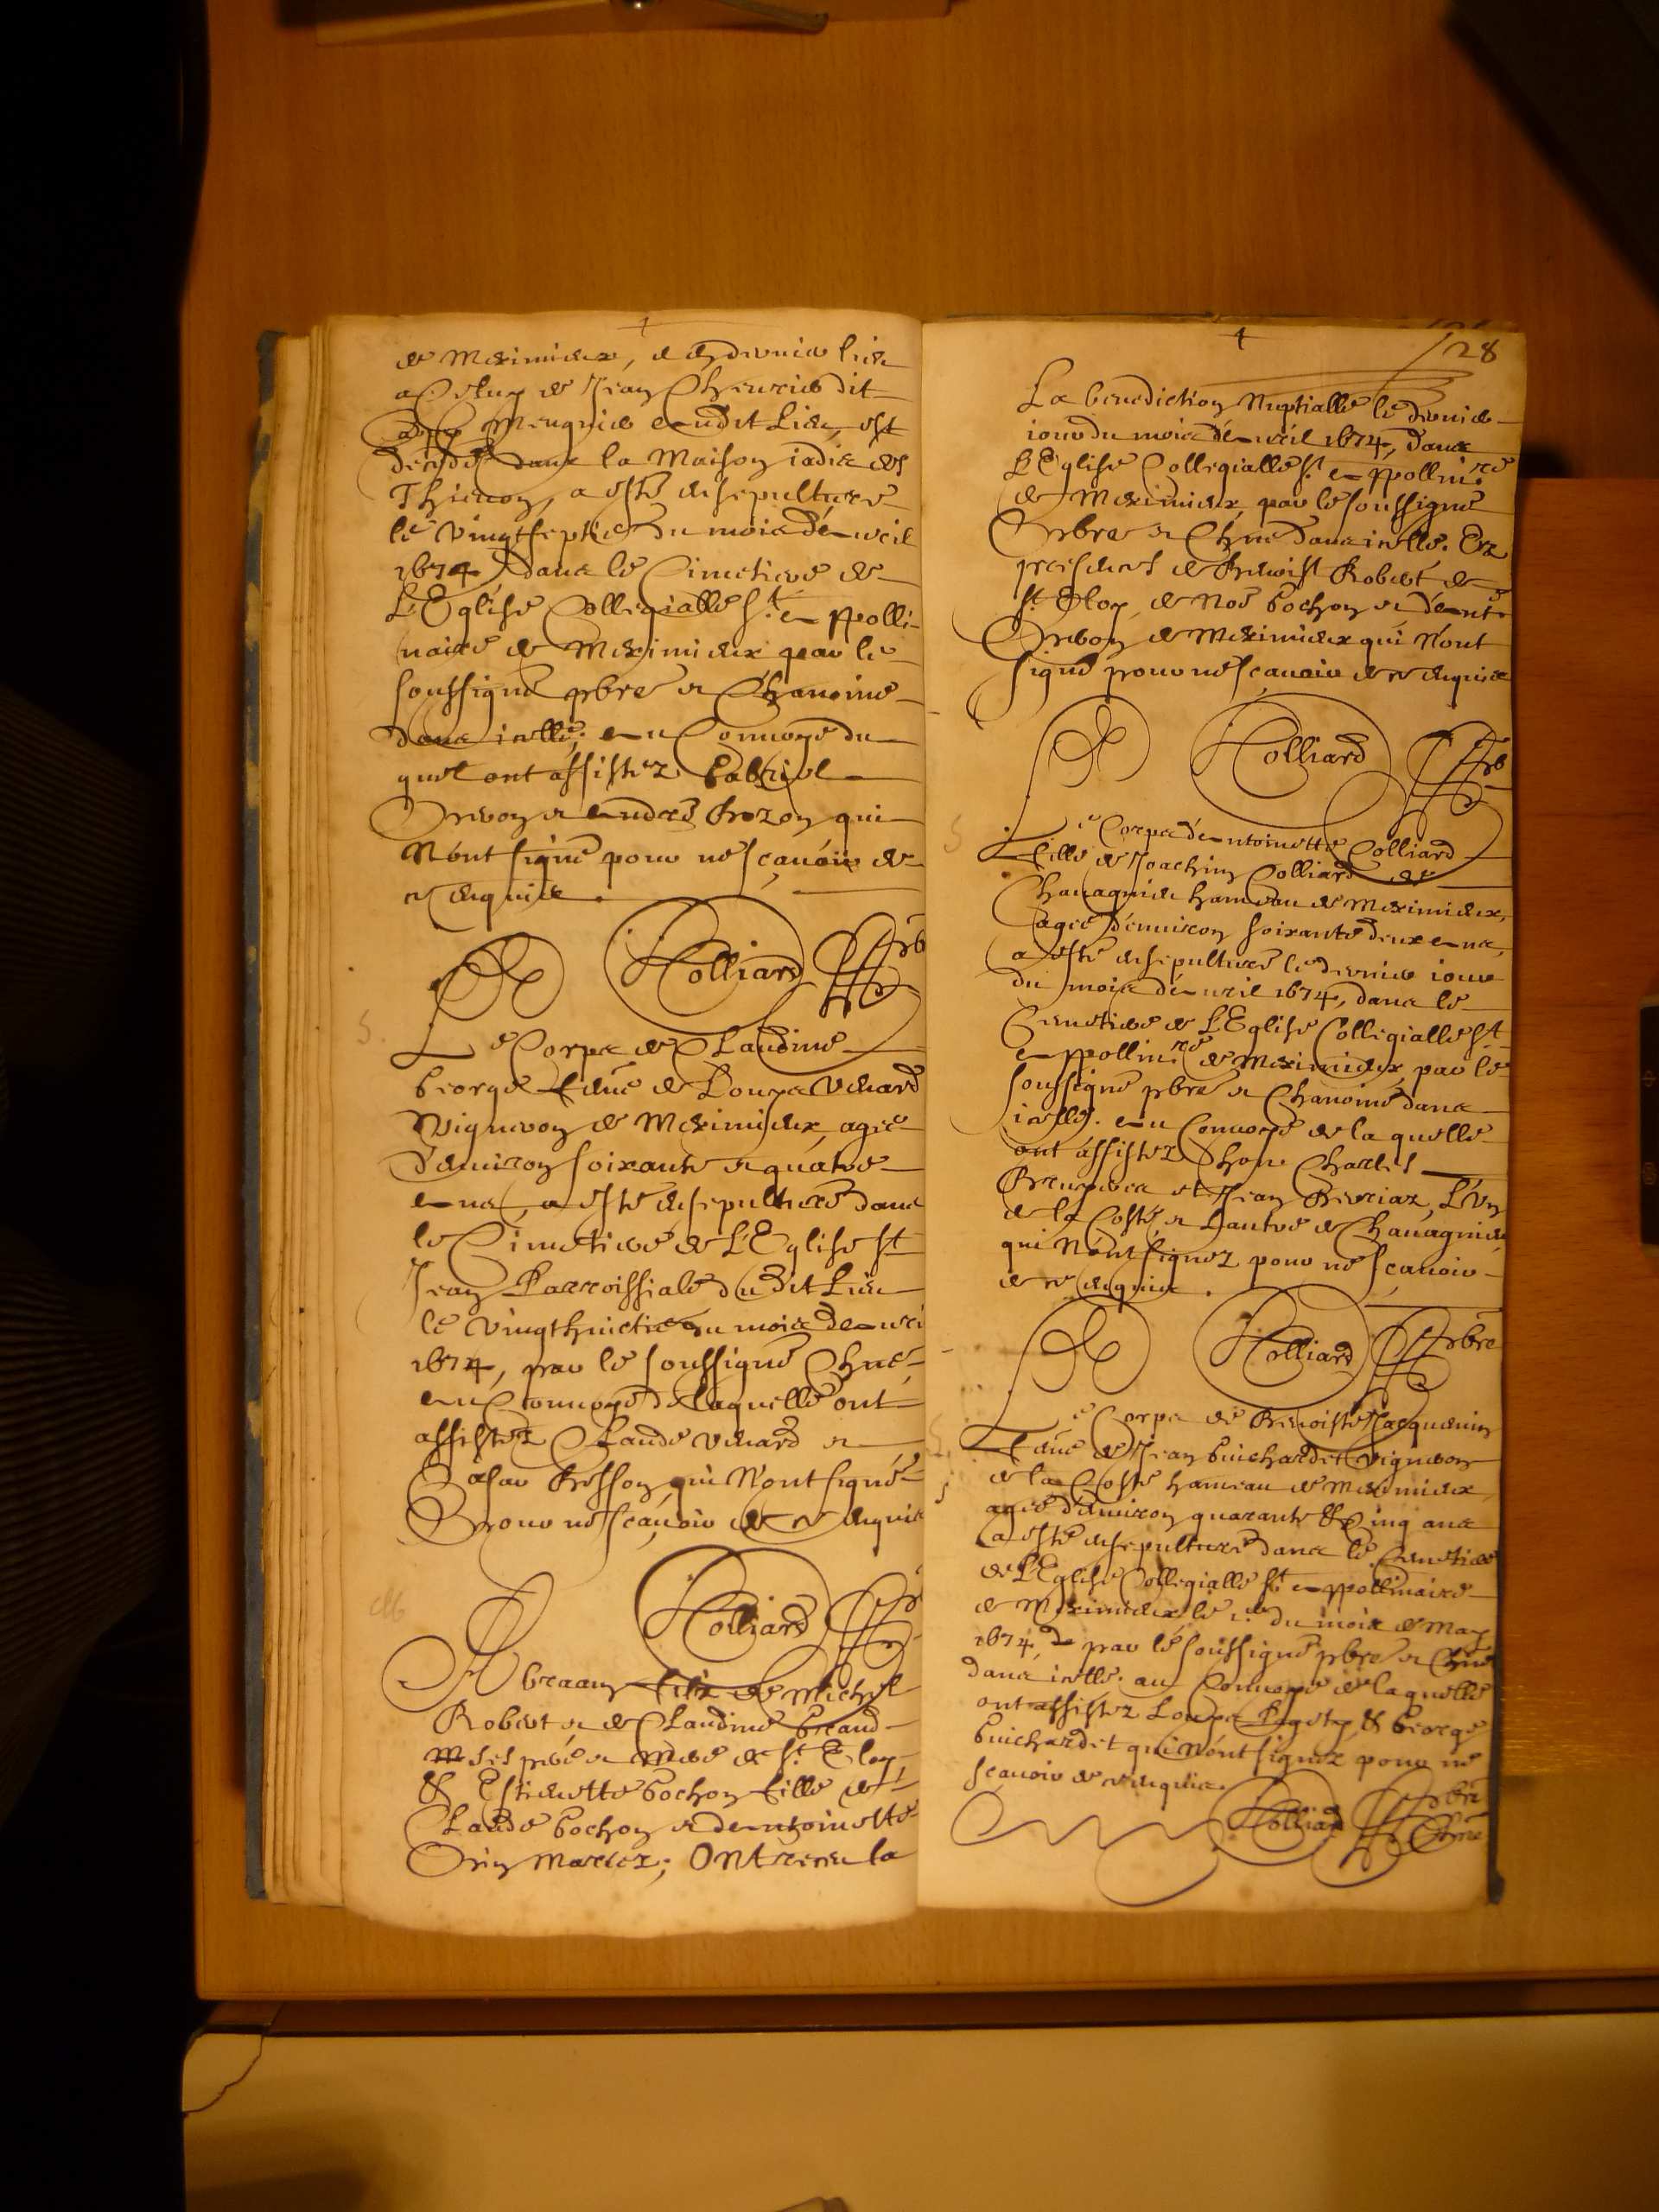 de Meximieux, et en dernier lieu
a celuy de Jean Chevrier dit
Meugnier audit Lieu, est
decedé dans la Maison jadis des
Thienon, a esté ensepulturé
le vingtseptie du mois d'Avril
1674, dans le Cimetiere de
L'Eglise Collegialle St. Appolli-
naire de Meximieux par le
soussigné pbre et Chanoine
dans icelle; au Convoye du
quel ont assistez Gabriel
Orevon et André Brozon qui
N'ont signé pour ne sçavoir de
ce enquis.
Colliard Pbr
S.
Le Corps de Claudine
George femme de Louys Venard
Vigneron de Meximieux, agée
d'environ soixante et quatre
ans, a esté ensepulturé dans
le Cimetiere de L'Eglise St
Jean Parroissiale dudit Lieu
le vingthuictie du mois d'Avri
1674, par le soussigné Chne
au Convoye de laquelle ont
assistez Claude Venard et
Cesar Brosson qui N'ont signé
pour ne sçavoir de ce enquis
Colliard Pbr
M
Abraam filz de Michel
Robert et de Claudine Grand
mes ses pere et Mere de St. Eloy,
& Estiennette Bochon fille de
Claude Bochon et d'Antoinette
Orin Mariez; Ont receu la
128
La benediction Nuptialle le dernier
jour du mois d'Avril 1674, dans
L'Eglise Collegialle St. Appollin.re
de Meximieux par le soussigné
Pbre et Chne dans icelle. Ez
presences de Benoist Robert de
St. Eloy, de Noé Bochon et d'Ant.
Orevon de Meximieux qui N'ont
signé pour ne sçavoir de ce enquis
Colliard Prb
S
Le Corps d'Antoinette Colliard
fille de Joachim Colliard de
Chavagnieu hameau de Meximieux,
agée d'environ soixante deux ans,
a esté ensepulturé le dernier jour
du mois d'Avril 1674, dans le
Cimetiere de L'Eglise Collegialle St
Appollin.re de Meximieux, par le
soussigné pbre et Chanoine dans
icelle. au Convoye de laquelle
ont assistez hon. Charles
et Jean L'un
de la Coste et L'autre de Chavagnieu
qui N'ont signez pour ne sçavoir
de ce enquis.
Colliard Pbre
S
Le Corps de Benoiste Jacquemin
femme de Jean Guichardet Vigneron
de la Coste hameau de Meximieux
agée d'environ quarante & cinq ans
a esté ensepulturé dans le Cimetiere
de L'Eglise Collegialle St Appollinaire
de Meximieux le 1.er du mois de May
1674, par le soussigné pbre et Chne
dans icelle. au Convoye de laquelle
ont assistez Louys & George
Guichardet qui N'ont signez pour ne
scavoir de ce enquis.
Colliard Pbre
Chne